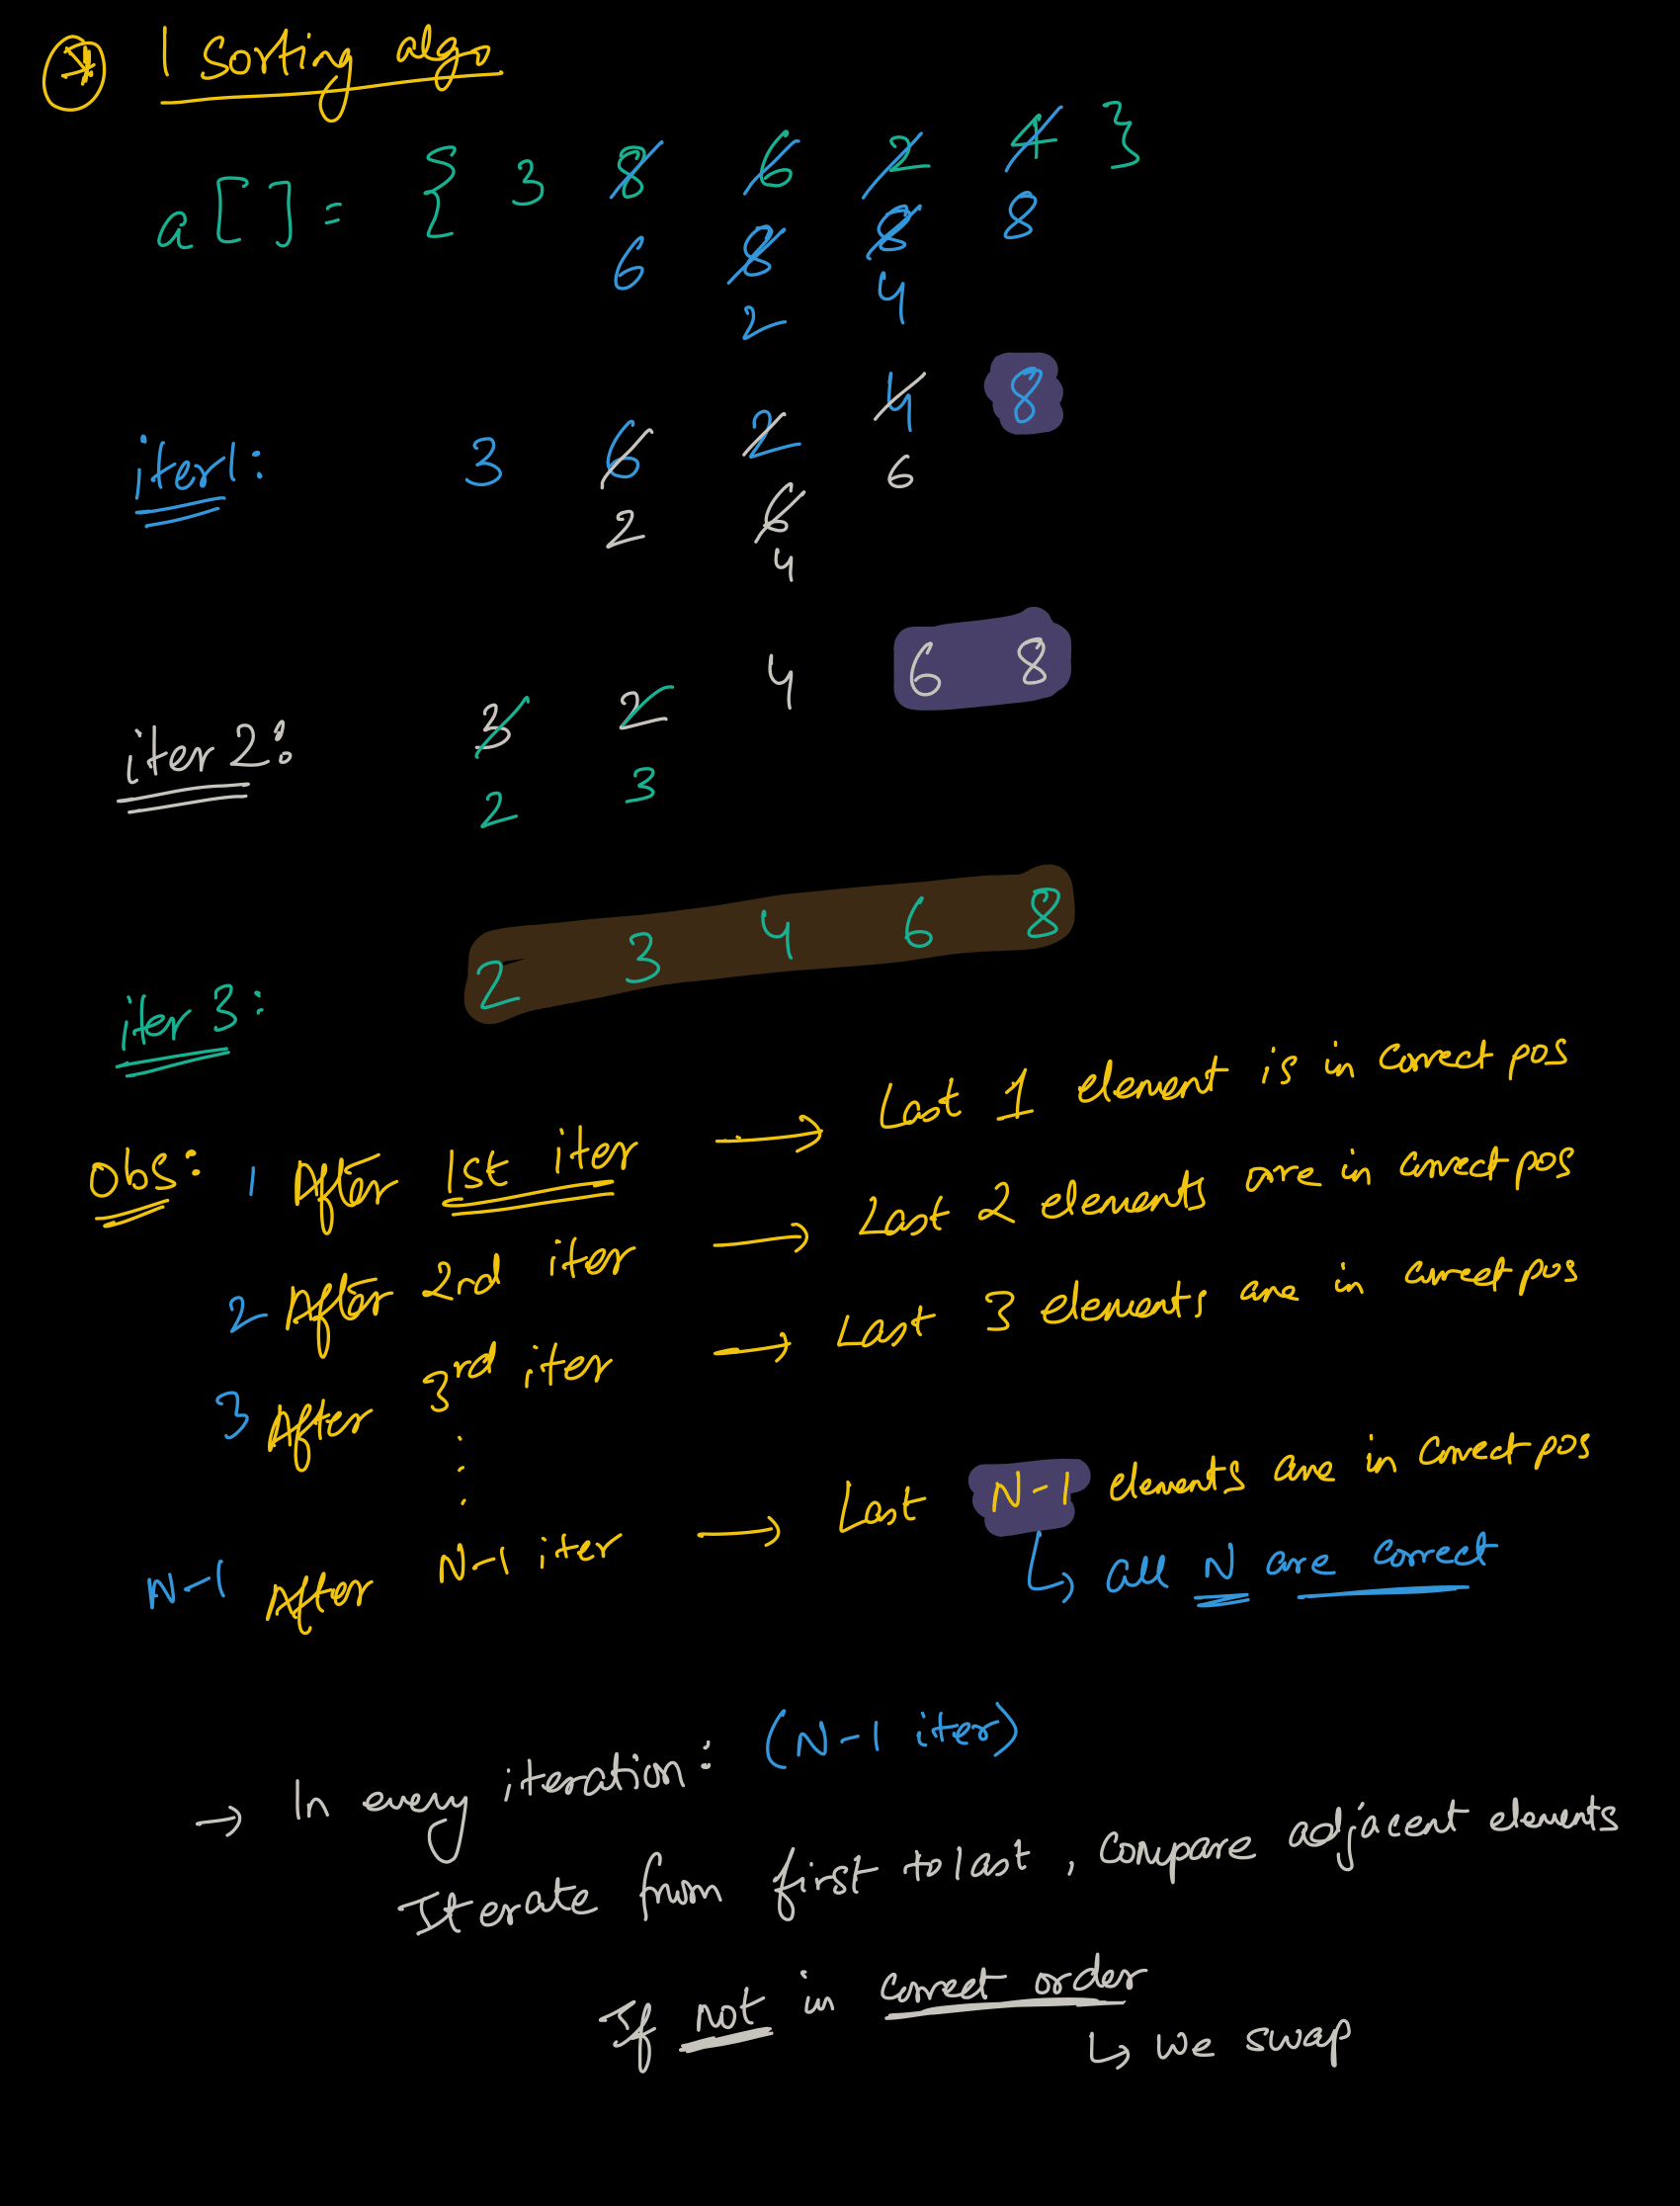 * 1 Sorting algo
a[] = { 3 8 6 2 4 }
6 8 8 8
2 4
iter1: 3 6 2 4 8
2 6 6
4
iter 2: 3 2 4 6 8
2 3
iter 3: 2 3 4 6 8
Obs: 1 After 1st iter → Last 1 element is in correct pos
2 After 2nd iter → Last 2 elements are in correct pos
3 After 3rd iter → Last 3 elements are in correct pos
⋮
N-1 After N-1 iter → Last N-1 elements are in correct pos
↳ all N are correct
→ In every iteration: (N-1 iter)
Iterate from first to last, compare adjacent elements
If not in correct order
↳ we swap